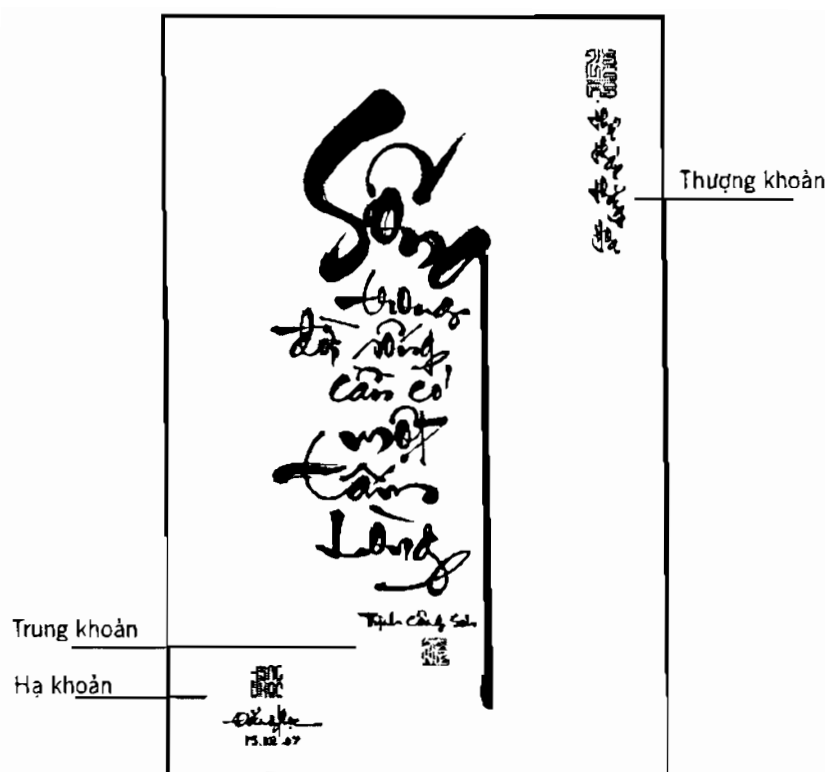 Thượng khoản
Sống
trong
đời sống
cần có
một
tấm
Lòng
Trịnh Công Sơn
Trung khoản
Hạ khoản